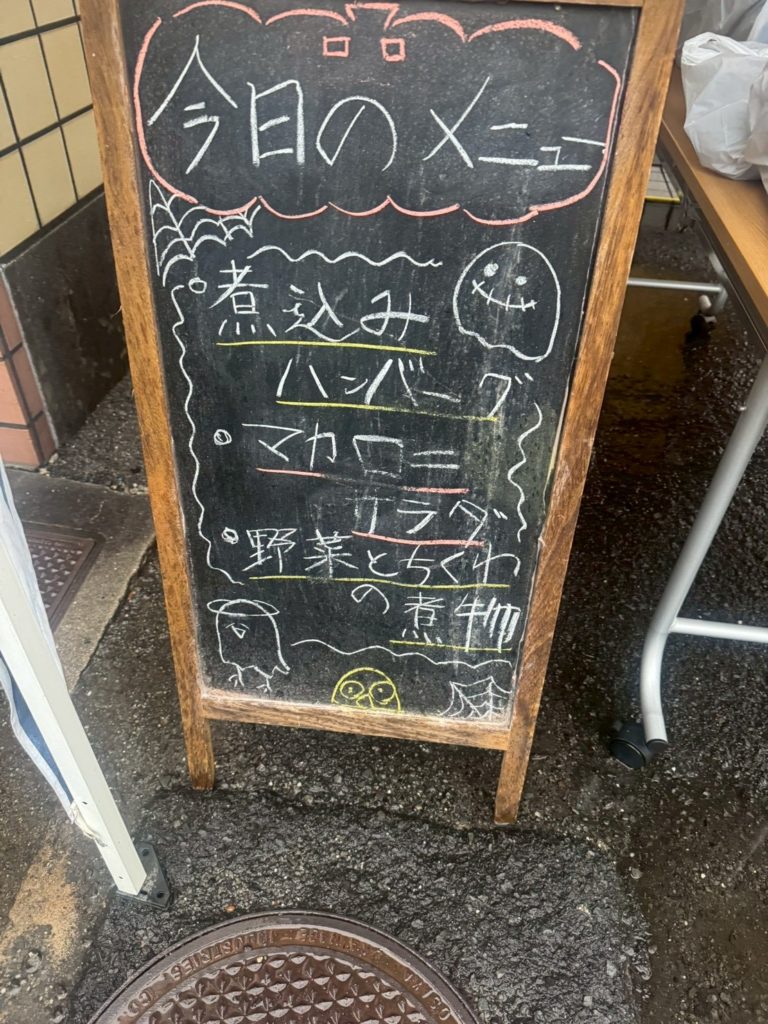 今日のメニュー
・煮込み
ハンバーグ
・マカロニ
サラダ
・野菜とちくわ
の煮物